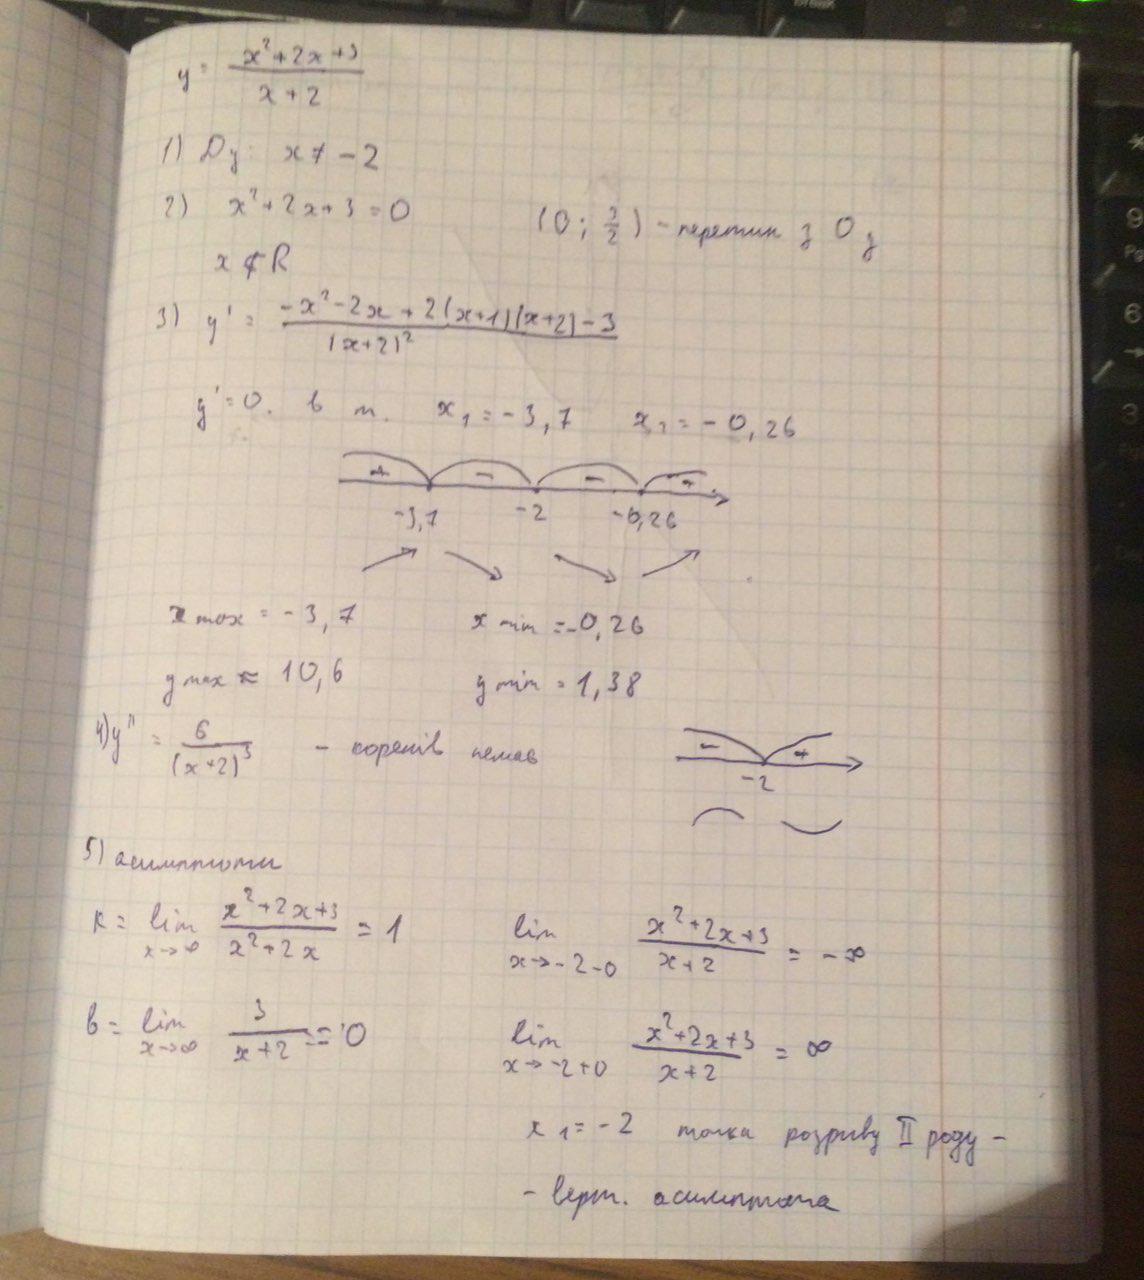 y = (x²+2x+3)/(x+2)
1) Dy: x ≠ -2
2) x²+2x+3=0 (0; 3/2) - перетин з Oy
x ∉ R
3) y' = (-x²-2x+2(x+1)(x+2)-3)/(x+2)²
y'=0. в т. x₁ = -3,7 x₂ = -0,26
+ - - +
-3,7 -2 -0,26
x max = -3,7 x min = -0,26
y max ≈ 10,6 y min = 1,38
4) y'' = 6/(x+2)³ - коренів немає - +
-2
5) асимптоти
k = lim x→∞ (x²+2x+3)/(x²+2x) = 1 lim x→-2-0 (x²+2x+3)/(x+2) = -∞
b = lim x→∞ 3/(x+2) == 0 lim x→-2+0 (x²+2x+3)/(x+2) = ∞
x₁ = -2 точка розриву II роду -
- верт. асимптота